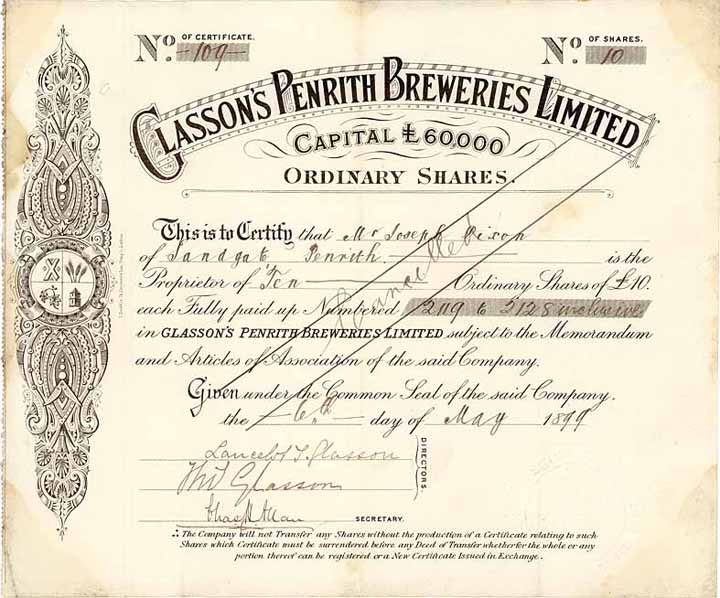 No. OF CERTIFICATE. 109
No. OF SHARES. 10
GLASSON'S PENRITH BREWERIES LIMITED
CAPITAL £60,000
ORDINARY SHARES.
This is to Certify that Mr Joseph Dixon
of Sandgate Penrith. is the
Proprietor of Ten Ordinary Shares of £10.
each Fully paid up Numbered 2119 to 2128 inclusive
in GLASSON'S PENRITH BREWERIES LIMITED subject to the Memorandum
and Articles of Association of the said Company.
Cancelled
Given under the Common Seal of the said Company.
the 6th day of May 1899
Lancelot T. Glasson
Glasson
DIRECTORS.
Allan
SECRETARY.
∴ The Company will not Transfer any Shares without the production of a Certificate relating to such
Shares which Certificate must be surrendered before any Deed of Transfer whether for the whole or any
portion thereof can be registered or a New Certificate Issued in Exchange.